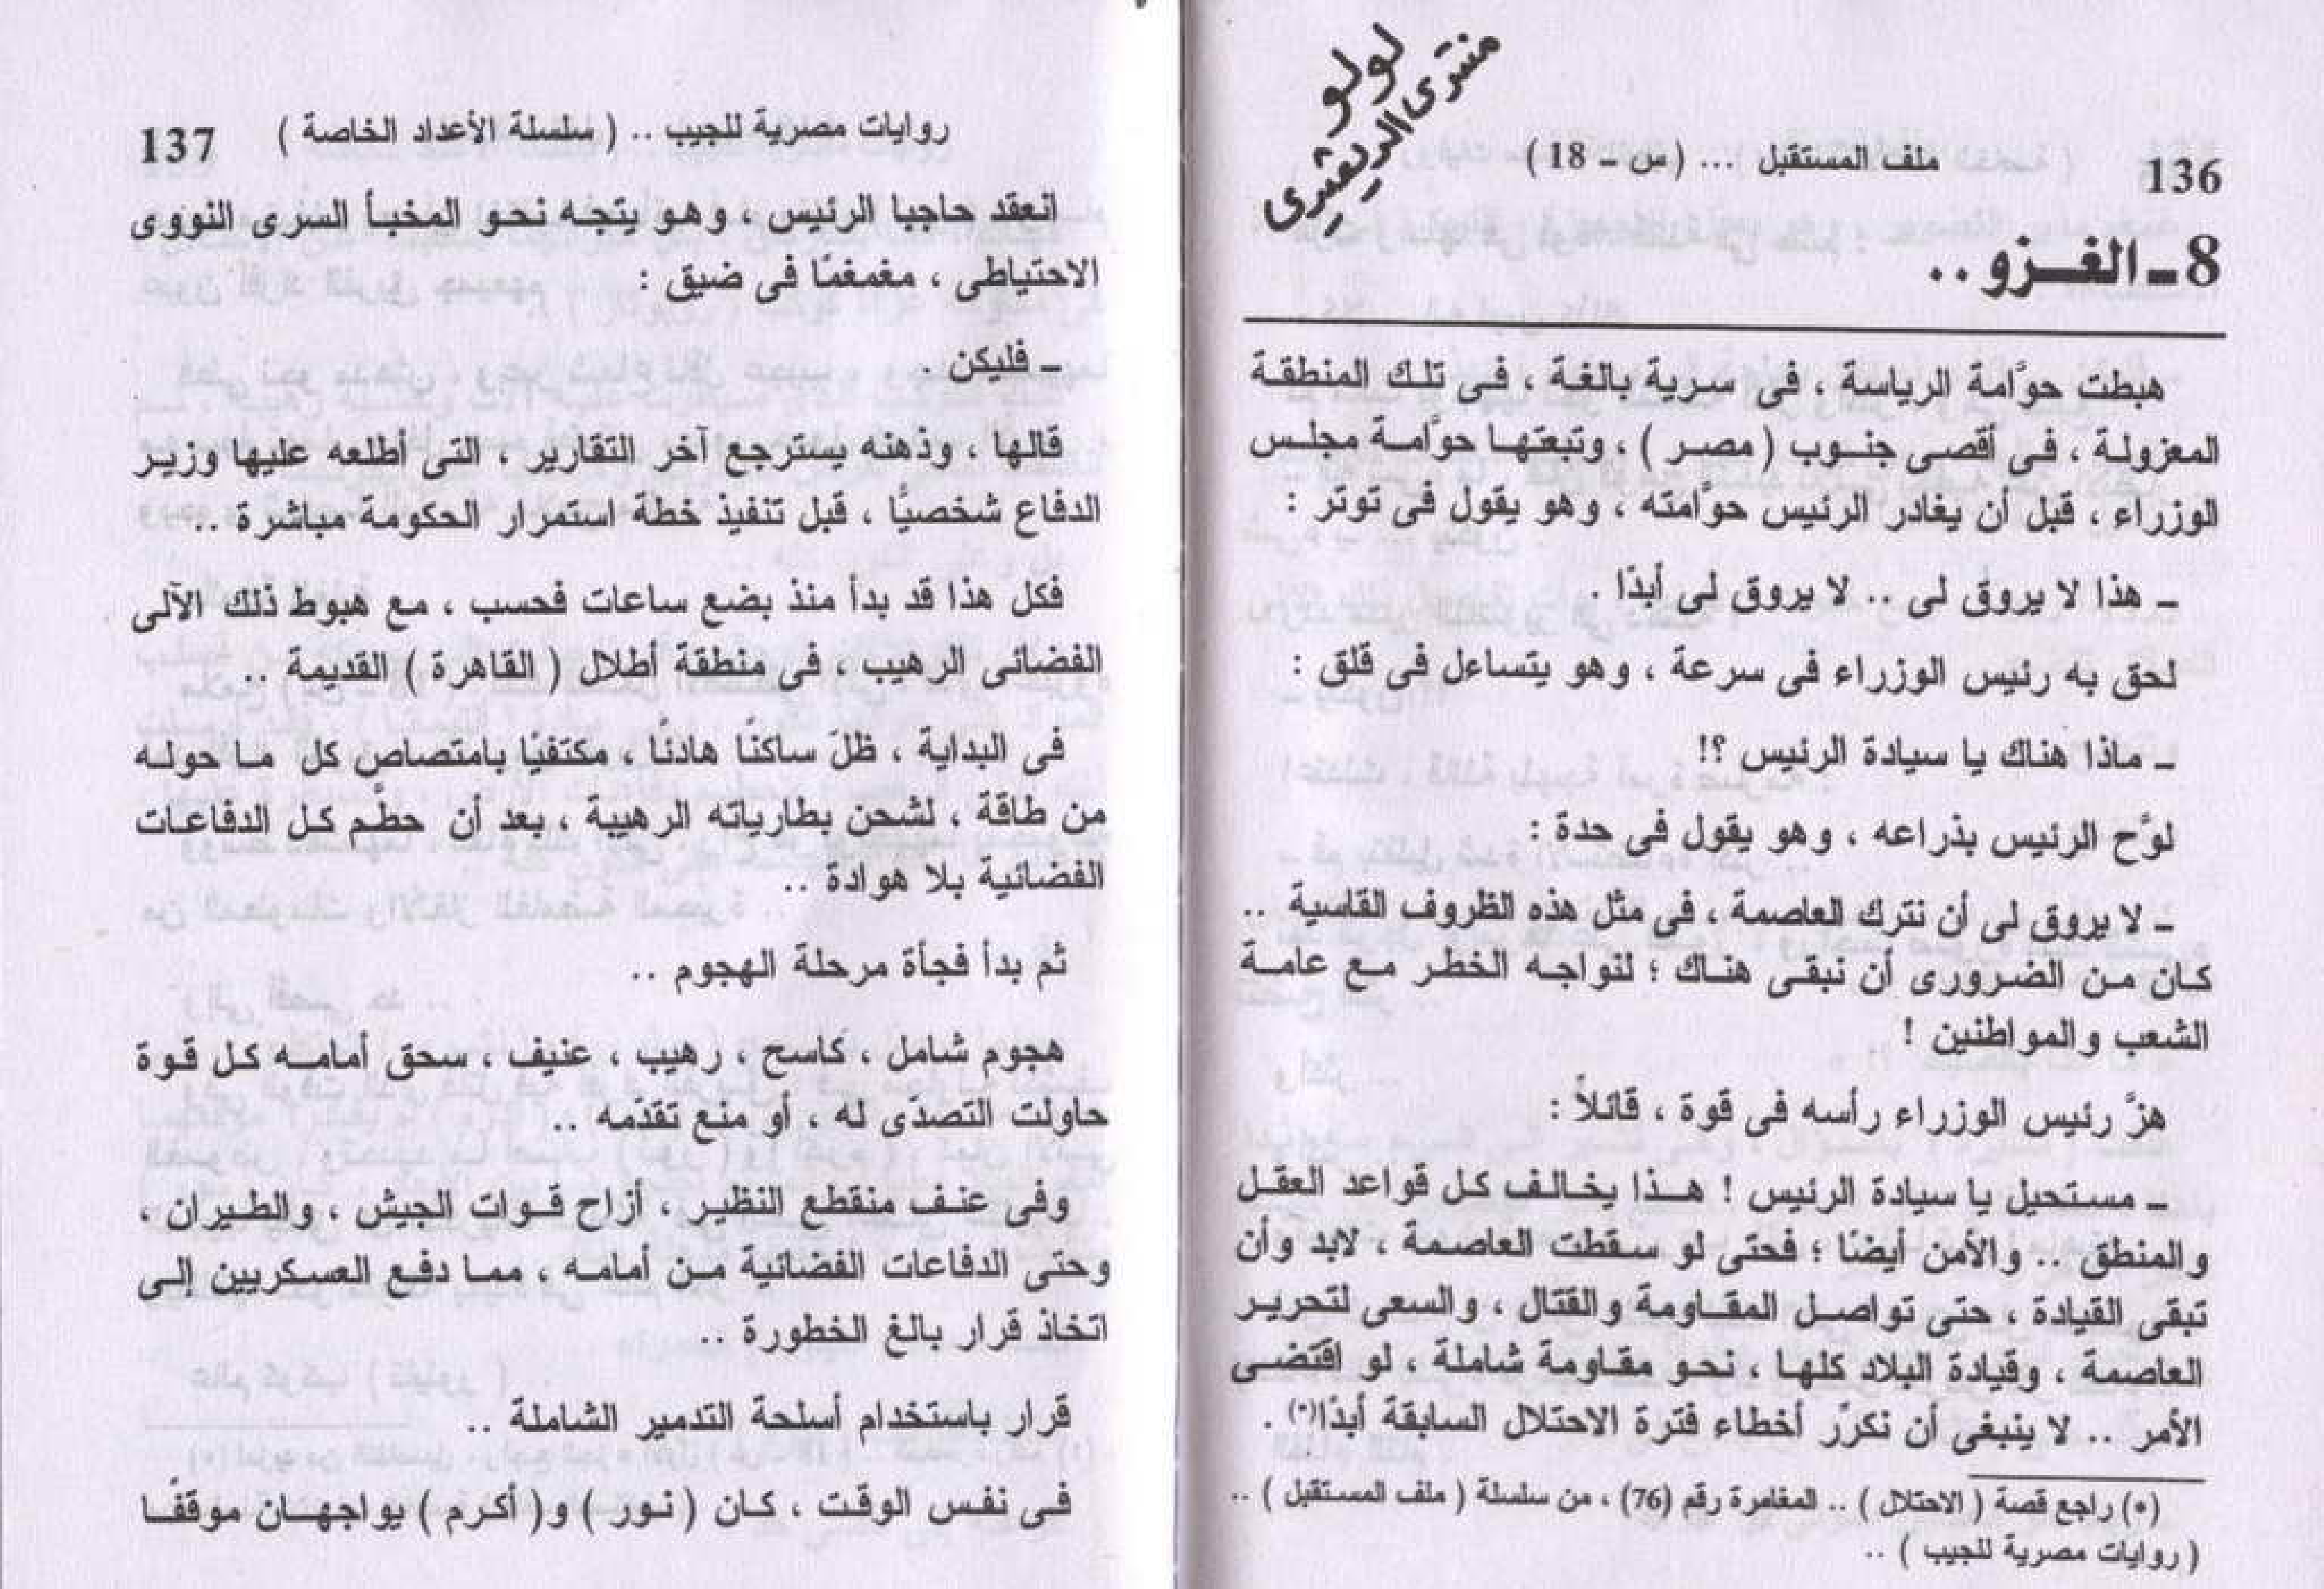 لولو
منتدى الديشيرى
136
ملف المستقبل ... ( س – 18 )
8 ـ الغــزو ..
هبطت حوَّامة الرياسة ، فى سرية بالغة ، فى تلك المنطقة
المعزولة ، فى أقصى جنوب ( مصر ) ، وتبعتها حوَّامة مجلس
الوزراء ، قبل أن يغادر الرئيس حوَّامته ، وهو يقول فى توتر :
ـ هذا لا يروق لى .. لا يروق لى أبدًا .
لحق به رئيس الوزراء فى سرعة ، وهو يتساءل فى قلق :
ـ ماذا هناك يا سيادة الرئيس ؟!
لوَّح الرئيس بذراعه ، وهو يقول فى حدة :
ـ لا يروق لى أن نترك العاصمة ، فى مثل هذه الظروف القاسية ..
كان من الضرورى أن نبقى هناك ؛ لنواجه الخطر مع عامة
الشعب والمواطنين !
هزَّ رئيس الوزراء رأسه فى قوة ، قائلاً :
ـ مستحيل يا سيادة الرئيس ! هذا يخالف كل قواعد العقل
والمنطق .. والأمن أيضًا ؛ فحتى لو سقطت العاصمة ، لابد وأن
تبقى القيادة ، حتى تواصل المقاومة والقتال ، والسعى لتحرير
العاصمة ، وقيادة البلاد كلها ، نحو مقاومة شاملة ، لو اقتضى
الأمر .. لا ينبغى أن نكرّر أخطاء فترة الاحتلال السابقة أبدًا(*) .
(*) راجع قصة ( الاحتلال ) .. المغامرة رقم (76) ، من سلسلة ( ملف المستقبل ) ..
( روايات مصرية للجيب ) ..
روايات مصرية للجيب .. ( سلسلة الأعداد الخاصة )
137
انعقد حاجبا الرئيس ، وهو يتجه نحو المخبأ السرى النووى
الاحتياطى ، مغمغمًا فى ضيق :
ـ فليكن .
قالها ، وذهنه يسترجع آخر التقارير ، التى أطلعه عليها وزير
الدفاع شخصيًّا ، قبل تنفيذ خطة استمرار الحكومة مباشرة ..
فكل هذا قد بدأ منذ بضع ساعات فحسب ، مع هبوط ذلك الآلى
الفضائى الرهيب ، فى منطقة أطلال ( القاهرة ) القديمة ..
فى البداية ، ظلّ ساكنًا هادئًا ، مكتفيًا بامتصاص كل ما حوله
من طاقة ، لشحن بطارياته الرهيبة ، بعد أن حطَّم كل الدفاعات
الفضائية بلا هوادة ..
ثم بدأ فجأة مرحلة الهجوم ..
هجوم شامل ، كاسح ، رهيب ، عنيف ، سحق أمامه كل قوة
حاولت التصدّى له ، أو منع تقدّمه ..
وفى عنف منقطع النظير ، أزاح قوات الجيش ، والطيران ،
وحتى الدفاعات الفضائية من أمامه ، مما دفع العسكريين إلى
اتخاذ قرار بالغ الخطورة ..
قرار باستخدام أسلحة التدمير الشاملة ..
فى نفس الوقت ، كان ( نور ) و( أكرم ) يواجهان موقفًا